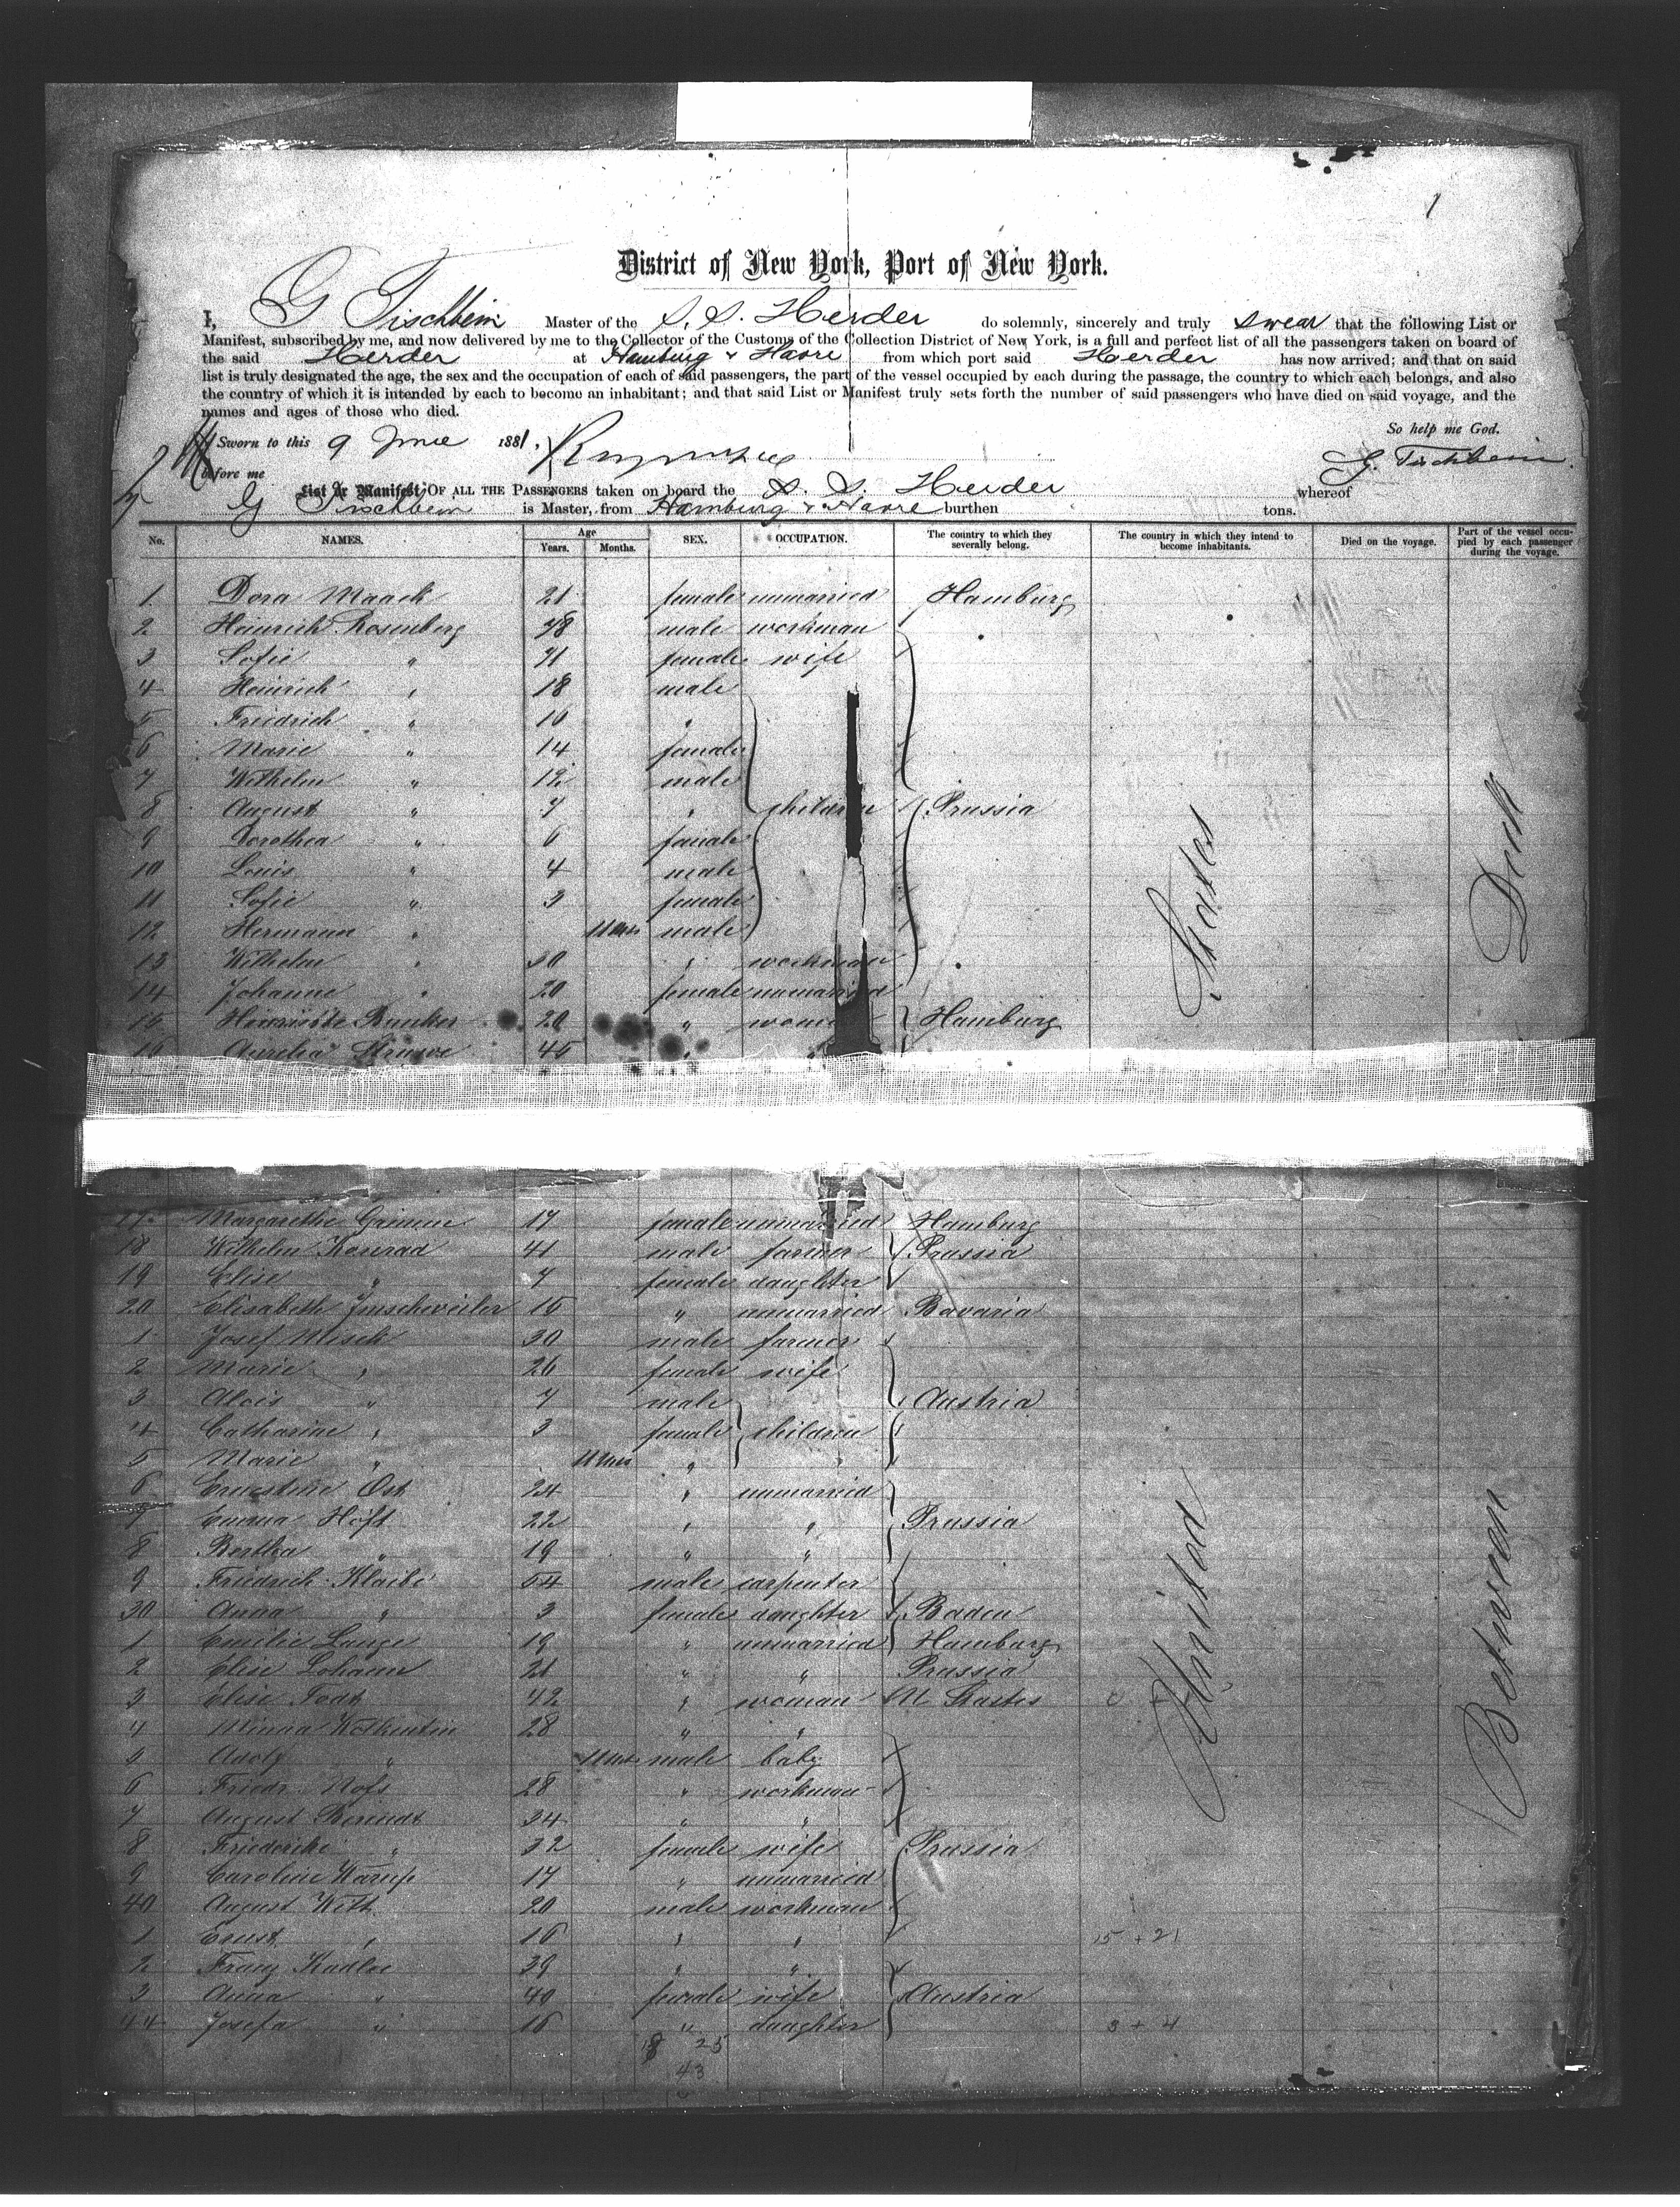 1
District of New York, Port of New York.
I, G Tischbein Master of the S. S. Herder do solemnly, sincerely and truly swear that the following List or
Manifest, subscribed by me, and now delivered by me to the Collector of the Customs of the Collection District of New York, is a full and perfect list of all the passengers taken on board of
the said Herder at Hamburg & Havre from which port said Herder has now arrived; and that on said
list is truly designated the age, the sex and the occupation of each of said passengers, the part of the vessel occupied by each during the passage, the country to which each belongs, and also
the country of which it is intended by each to become an inhabitant; and that said List or Manifest truly sets forth the number of said passengers who have died on said voyage, and the
names and ages of those who died.
So help me God.
Sworn to this 9 June 1881.
before me G. Tischbein
List or Manifest OF ALL THE PASSENGERS taken on board the S. S. Herder whereof
G Tischbein is Master, from Hamburg & Havre burthen tons.
No. NAMES. Age Years. Months. SEX. OCCUPATION. The country to which they severally belong. The country in which they intend to become inhabitants. Died on the voyage. Part of the vessel occupied by each passenger during the voyage.
1. Dora Maack 21 female unmarried Hamburg
2 Heinrich Rosenberg 48 male workman
3 Sofie " 41 female wife
4 Heinrich " 18 male
5 Friedrich " 16 "
6 Marie " 14 female
7 Wilhelm " 12 male
8 August " 7 " children Prussia
9 Dorothea " 6 female
10 Louis " 4 male
11 Sofie " 3 female
12 Hermann " 11 mos male
13 Wilhelm " 30 " workman
14 Johanne " 20 female unmarried
15 Henriette Bunker 20 " woman Hamburg
16 Amelia Struwe 45 "
17. Margarethe Grimm 17 female unmarried Hamburg
18 Wilhelm Konrad 41 male farmer Prussia
19 Elise " 7 female daughter
20 Elisabeth 15 " unmarried Bavaria
1 Josef Misek 30 male farmer
2 Marie " 26 female wife
3 Alois " 7 male Austria
4 Catharine " 3 female children
5 Marie " 11 mos " "
6 Ernestine Ost 24 " unmarried
7 Emma Höft 22 " " Prussia
8 Bertha " 19 " "
9 Friedrich Klaibe 54 male carpenter
30 Anna " 3 female daughter Baden
1 Emilie Lange 19 " unmarried Hamburg
2 Elise Lohann 21 " " Prussia
3 Elise Todt 42 " woman U States
4 Minna Wolkentin 28 " "
5 Adolf " 11 mos male baby
6 Friedr. 28 " workman
7 August Berendt 34 " "
8 Friederike " 32 female wife Prussia
9 Caroline Karup 17 " unmarried
40 August Witt 20 male workman
1 Ernst " 16 " " 15 + 21
2 Franz Kudlac 39 " "
3 Anna " 40 female wife Austria
44 Josefa " 16 " daughter 3 + 4
18 25
43
United States
Between Deck